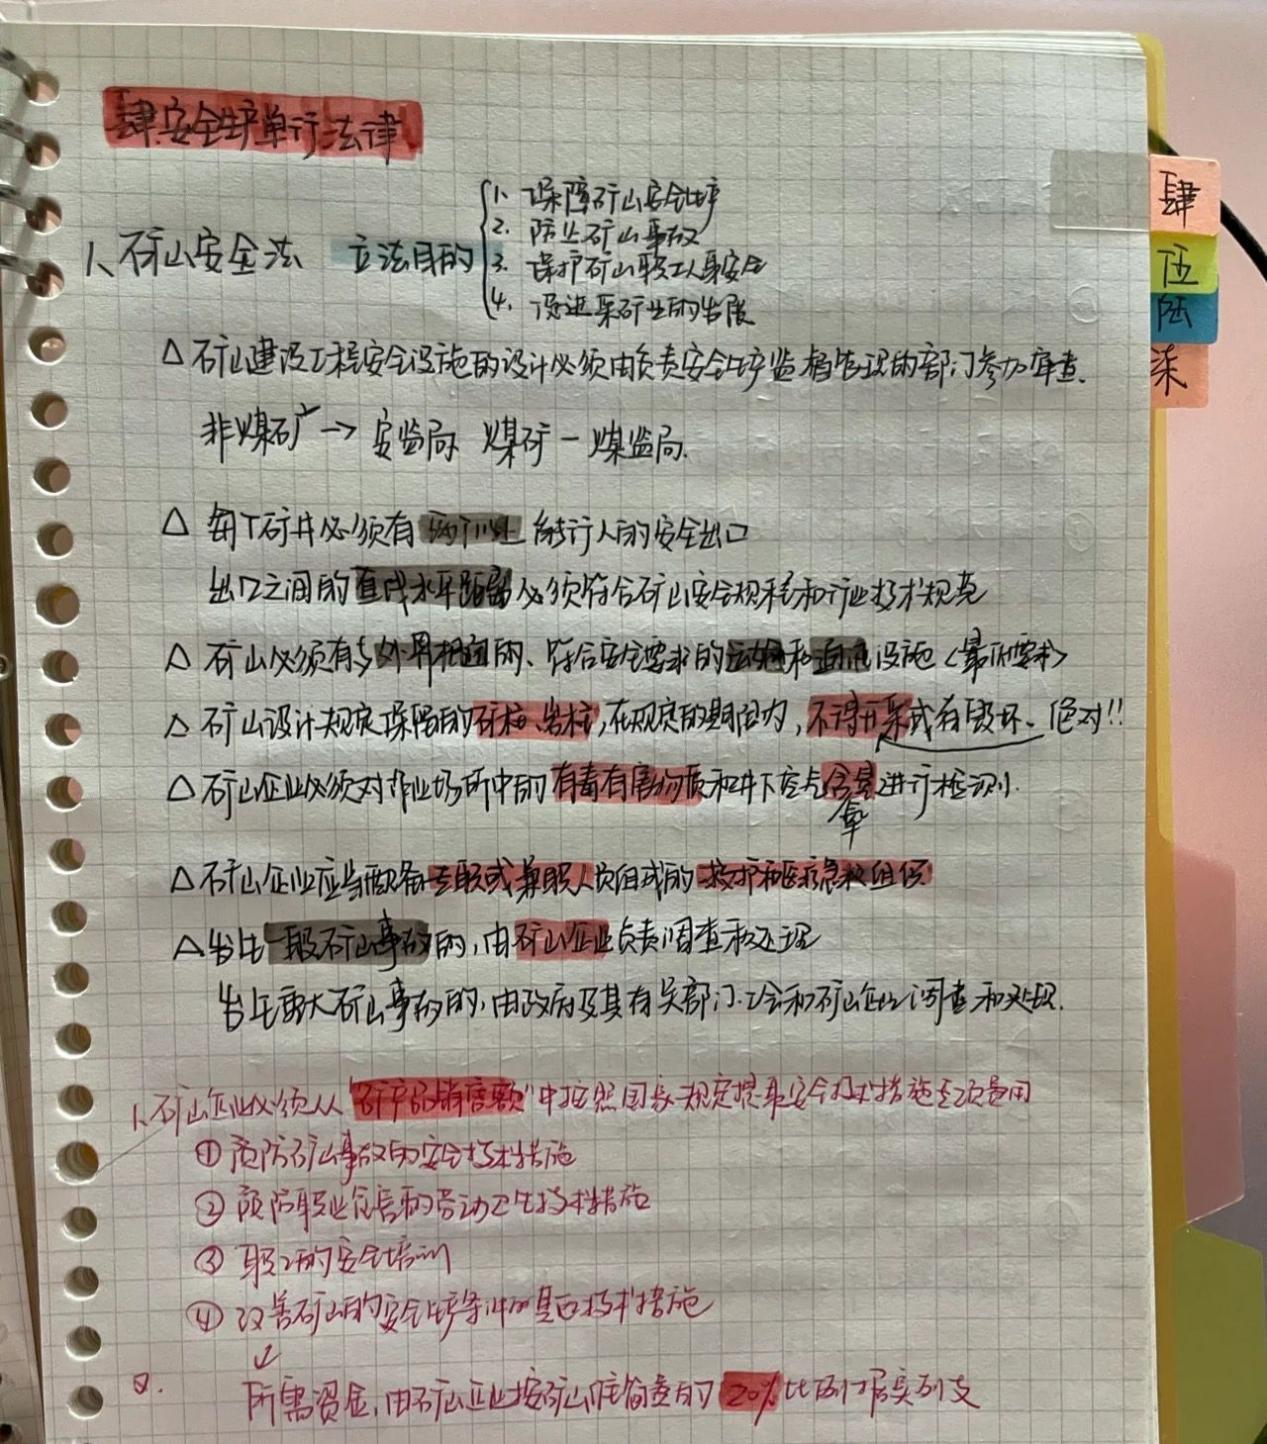 肆.安全生产单行法律
1、矿山安全法 立法目的
1. 保障矿山安全生产
2. 防止矿山事故
3. 保护矿山职工人身安全
4. 促进采矿业的发展
△ 矿山建设工程安全设施的设计必须由负责安全生产监督管理的部门参加审查.
非煤矿→安监局 煤矿-煤监局.
△ 每个矿井必须有两个以上能行人的安全出口
出口之间的直线水平距离必须符合矿山安全规程和行业技术规范
△ 矿山必须有与外界相通的、符合安全要求的运输和通讯设施<最低要求>
△ 矿山设计规定保留的矿柱、岩柱,在规定的期限内,不得开采或有毁坏. 绝对!!
△ 矿山企业必须对作业场所中的有毒有害物质和井下空气含氧进行检测.
氧
△ 矿山企业应当配备专职或兼职人员组成的救护和医疗急救组织
△ 发生一般矿山事故的,由矿山企业负责调查和处理
发生重大矿山事故的,由政府及其有关部门.工会和矿山企业调查和处理.
1、矿山企业必须从"矿产品销售额"中按照国家规定提取安全技术措施专项费用
① 预防矿山事故的安全技术措施
② 预防职业危害的劳动卫生技术措施
③ 职工的安全培训
④ 改善矿山的安全生产条件的其它技术措施
↓
2. 所需资金,由矿山企业按矿山维简费的20%比例据实列支
肆
伍
陆
柒